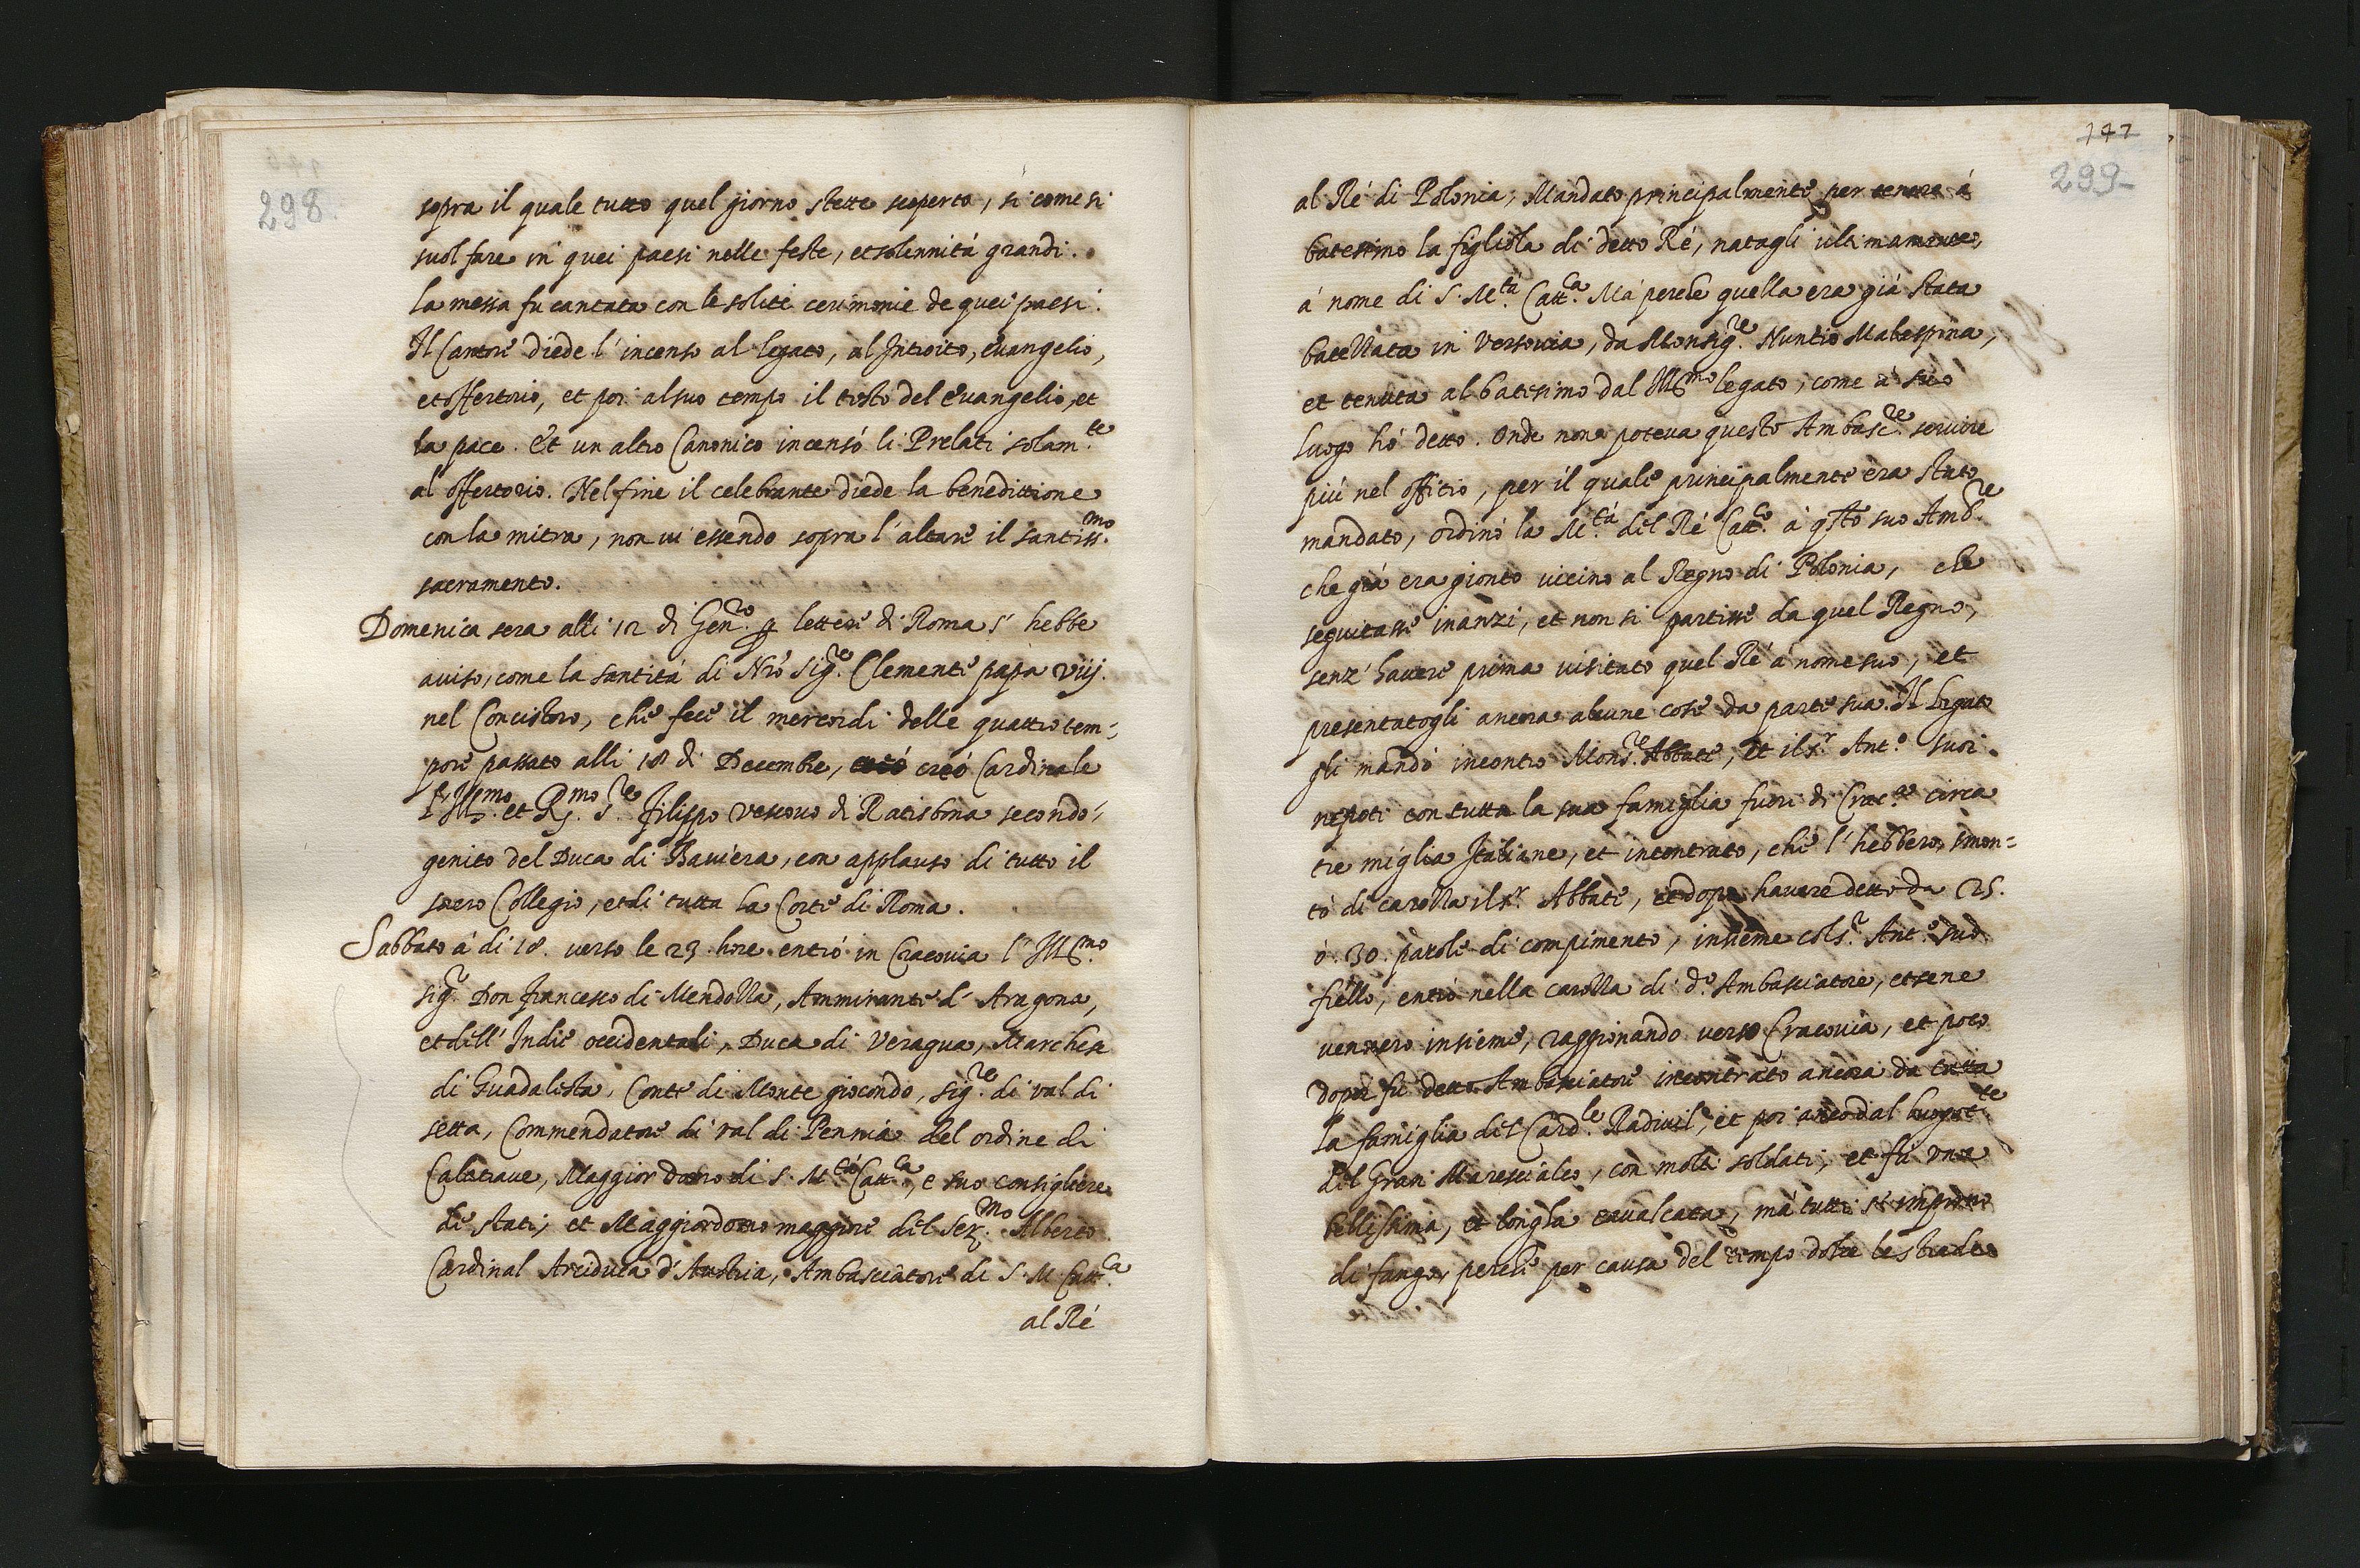 298.
sopra il quale tutto quel giorno stette scoperto, si come si
suol fare in quei paesi nelle feste, et solennità grandi.
la messa fu cantata con le soliti cerimonie de quei paesi.
Il Cantore diede l'incenso al legato, al Introito, evangelio,
et offertorio, et poi al suo tempo il testo del evangelio, et
la pace. Et un altro Canonico incensó li Prelati solam.te
al offertorio. Nel fine il celebrante diede la benedittione
con la mitra, non ui essendo sopra l'altare il santiss.mo
sacramento.
Domenica sera alli 12 di Gen.ro p lettere di Roma s'hebbe
auiso, come la santità di Nrõ Sig.re Clemente papa viij.
nel Concistoro, che fece il mercordi delle quattro tem-
pore passato alli 18 di Decembre, creó Cardinale
l'Ill.mo et R.mo S.re Filippo vescouo di Ratisbona secondo-
genito del Duca di Bauiera, con applauso di tutto il
sacro Collegio, et di tutta la Corte di Roma.
Sabbato à di 18. verso le 23. hore entró in Cracouia l'Ill.mo
sig.r Don Francesco di Mendozza, Ammirante d'Aragona,
et dell'Indie occidentali, Duca di Veragua, Marchese
di Guadalesta, Conte di Monte giocondo, sig.re di val di
setta, Commendatore di val di Pennia del ordine di
Calatraue, Maggior domo di S. M.tà Catt.ca, e suo consigliere
di stati, et Maggiordomo maggiore del Ser.mo Alberto
Cardinal Arciduca d'Austria, Ambasciatore di S. M. Catt.ca
al Ré
147
299
al Ré di Polonia, Mandato principalmente per tenere á
batesimo la figliola di detto Ré, natagli ultimamente,
á nome di S. M.tà Catt.ca Má perche quella era giá stata
batezzata in Versouia, da Monsig.re Nuntio Malespina,
et tenuta al batesimo dal Ill.mo legato, come á suo
luogo hó detto. Onde non poteua questo Ambasc.re seruire
piú nel offitio, per il quale principalmente era stato
mandato, ordinó la M.tà del Ré Catt.co á qsto suo Amb.re
che giá era gionto vicino al Regno di Polonia, che
seguitasse inanzi, et non si partisse da quel Regno,
senz'hauere prima visitato quel Ré á nome suo, et
presentatogli ancora alcune cose da parte sua. Il Legato
gli mandó incontro Mons.re Abbate, et il s.r Ant.o suoi
nepoti con tutta la sua famiglia fuori di Crac.a circa
tre miglia Italiane, et incontrato, che l'hebbero, smon-
tó di carozza il s.r Abbate, et dopo hauere detto da 25.
ó 30. parole di compimento, insieme col s.r Ant.o suo
fr̃ello, entró nella carozza di d.o Ambasciatore, et sene
vennero insieme, raggionando verso Cracouia, et poco
dopo fu detto Ambasciatore incontrato ancora da tutta
la famiglia del Card.le Radiuil, et poi anco dal luogot.te
del Gran Maresciallo, con molti soldati, et fu una
bellissima, et longha caualcata, má tutti s'impirno
di fango, perche per causa del tempo dolce le strade